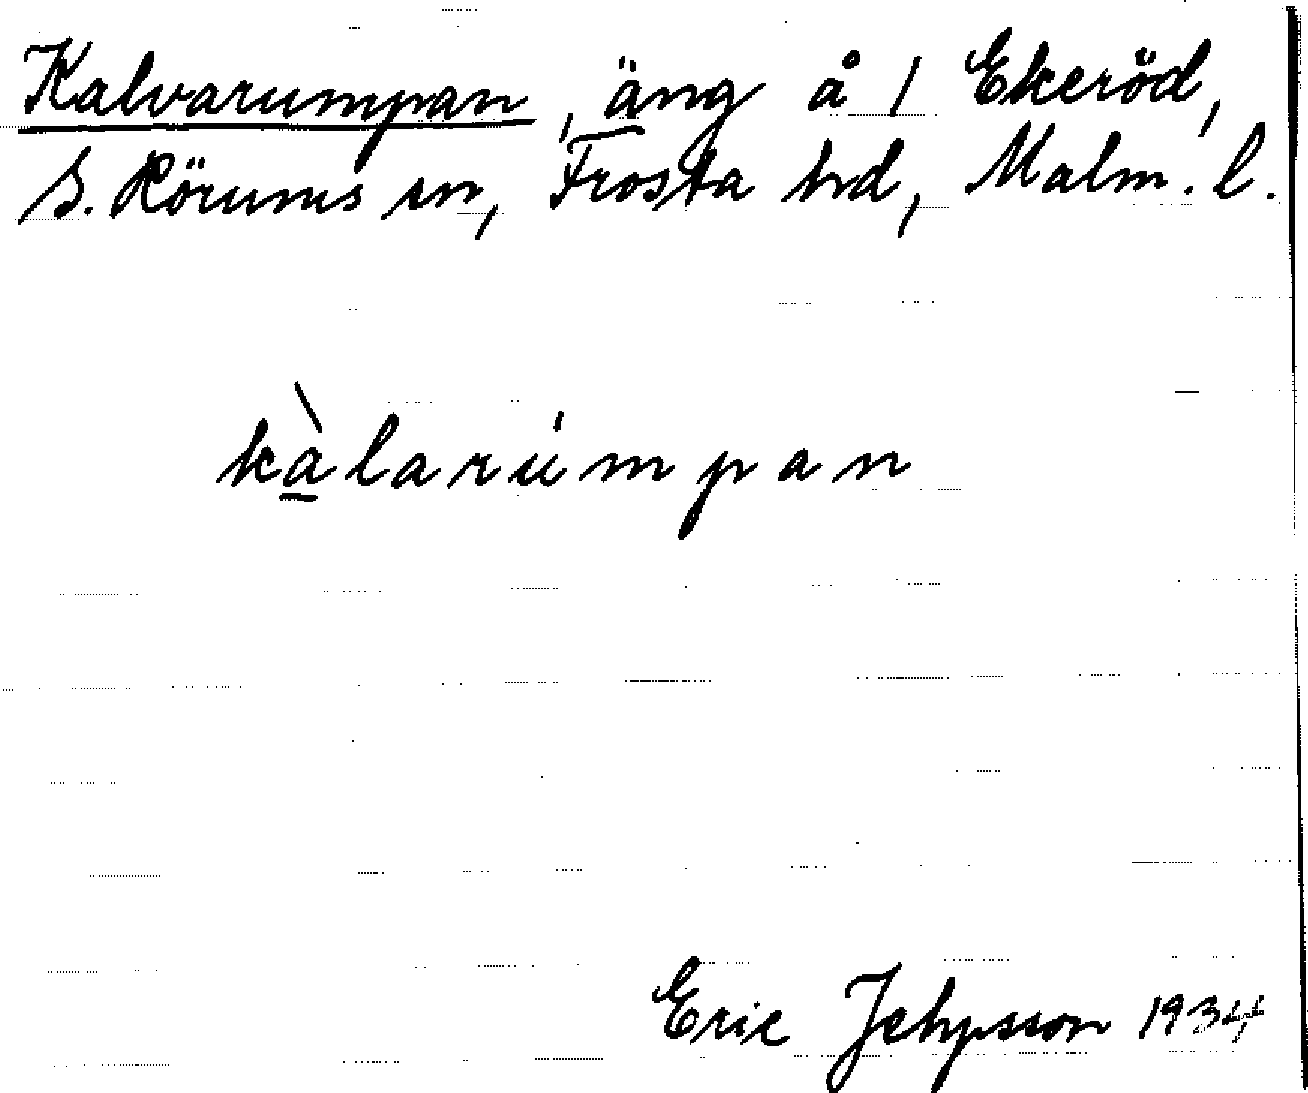 Kalvarumpan, äng å 1 Ekeröd,
S. Rörums sn, Frosta hd, Malm. l.
kàlarúmpan
Eric Jehpsson 1934